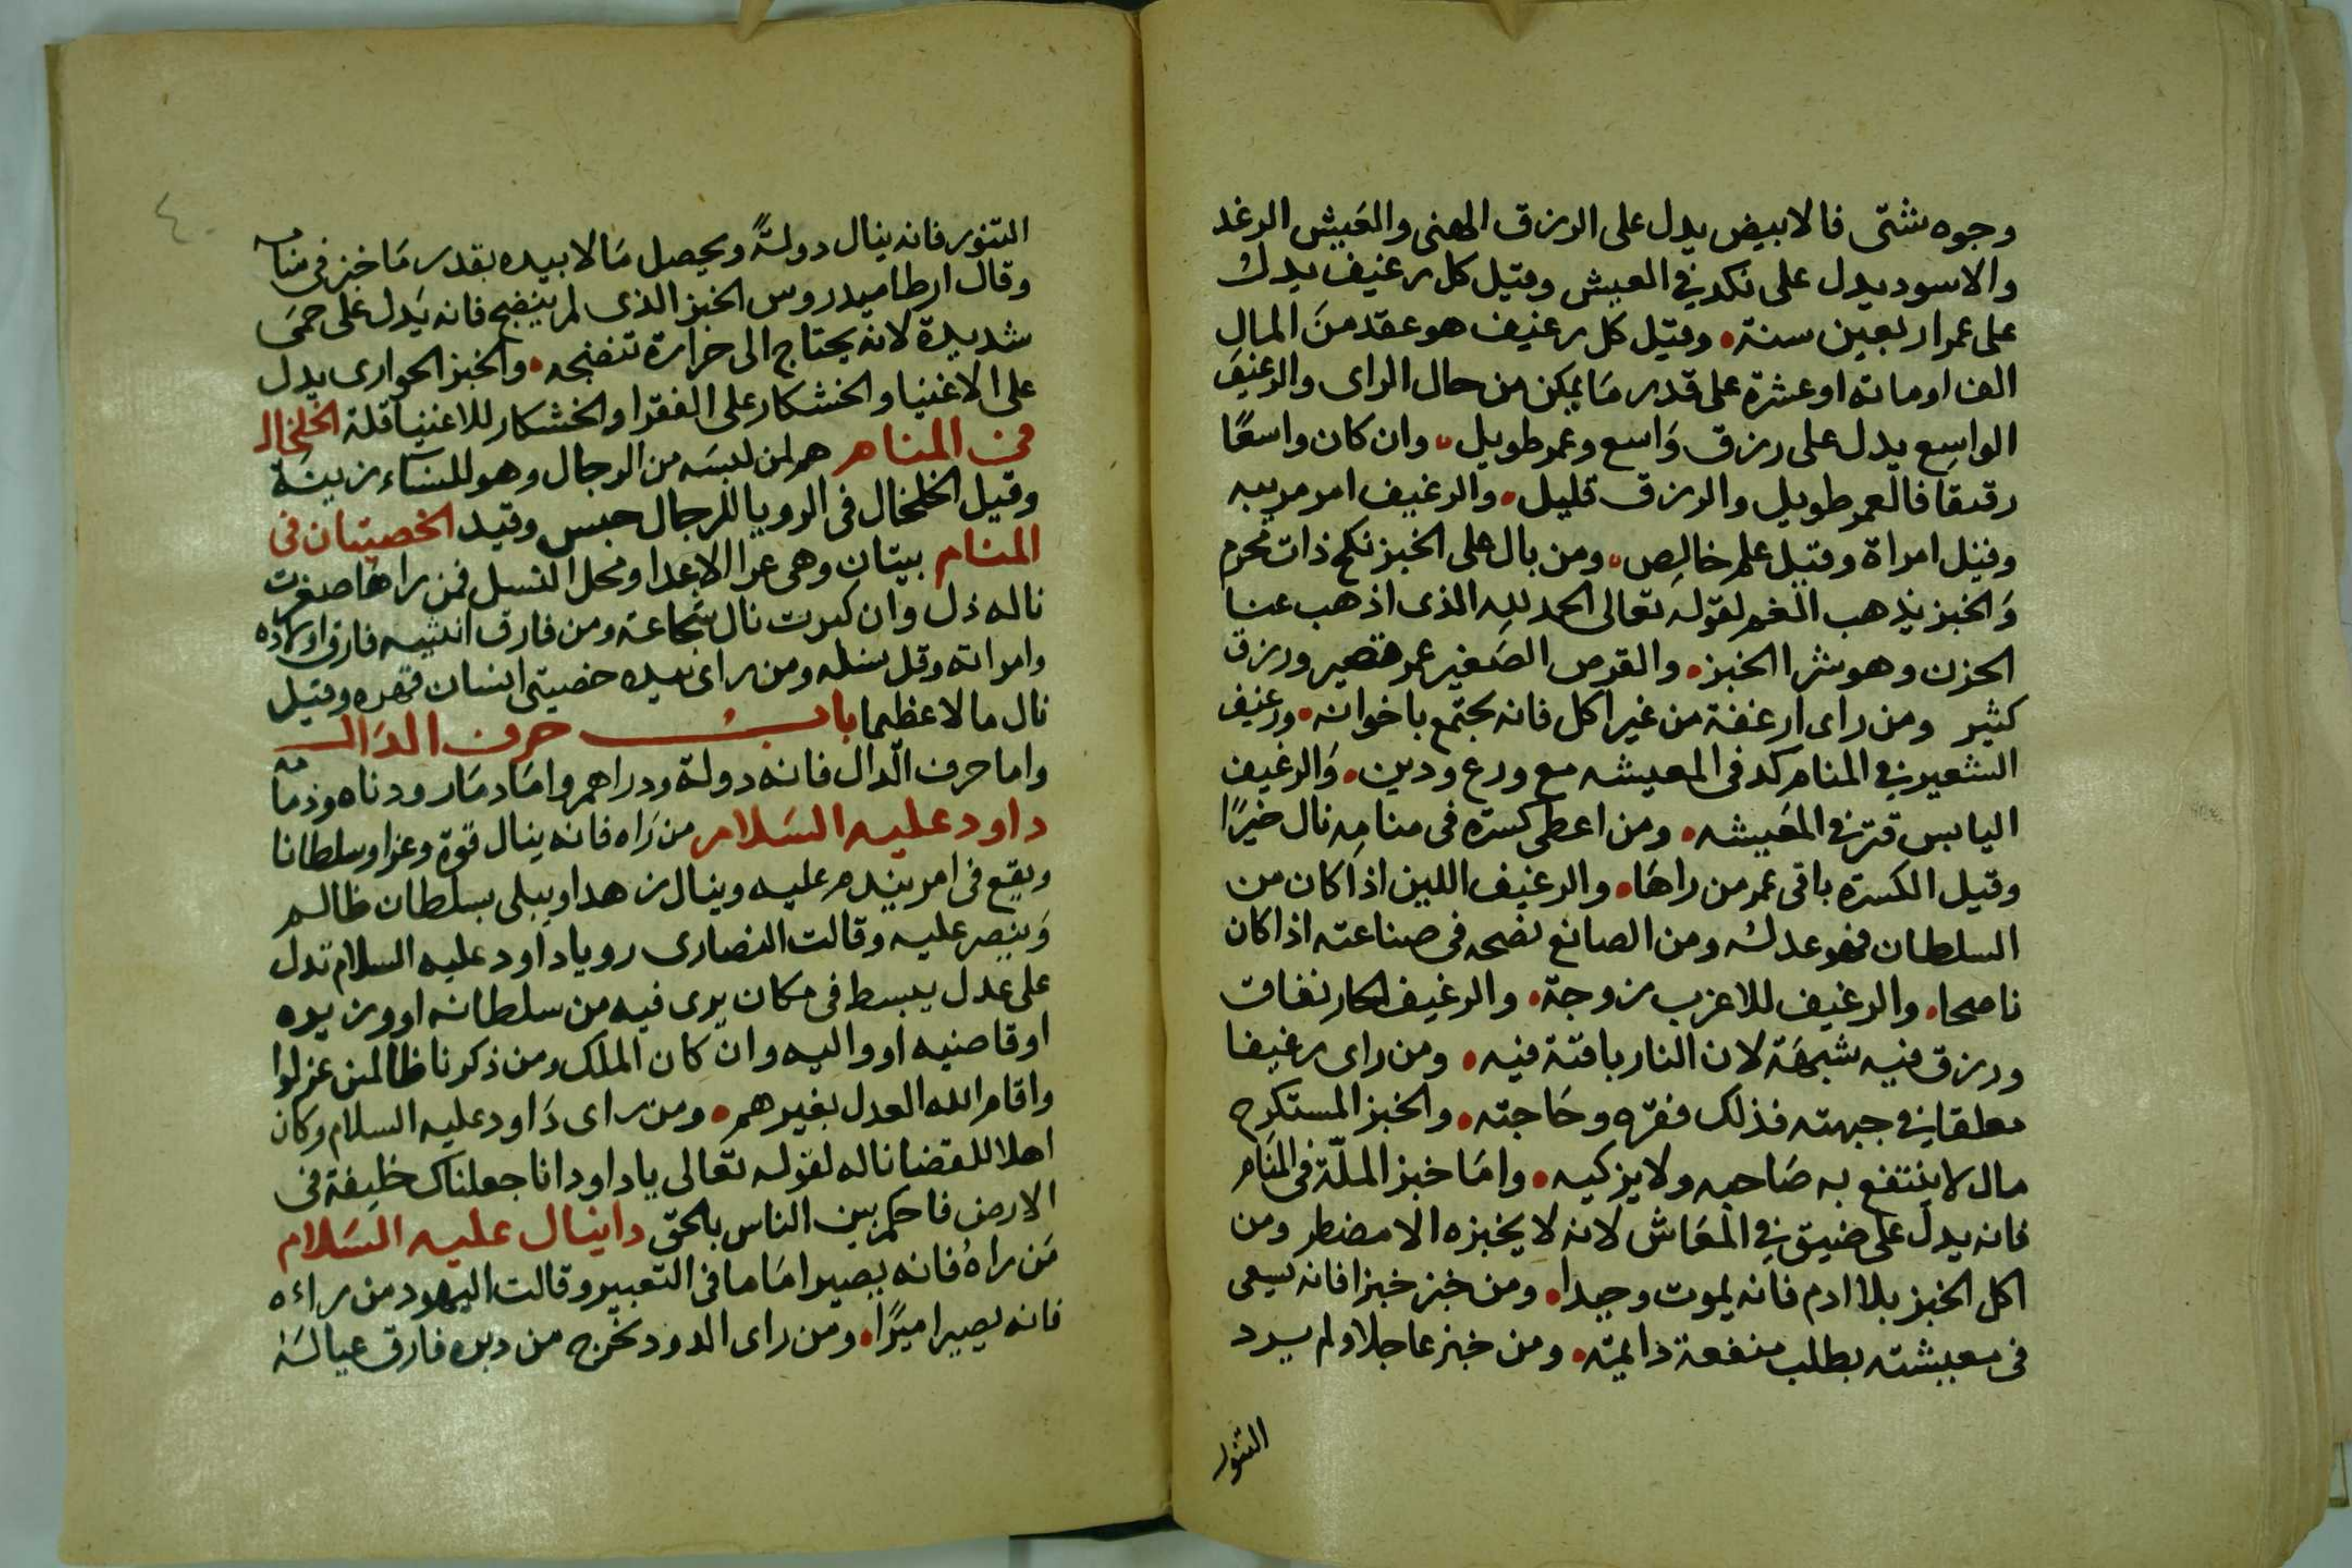 وجوه شتى فالابيض يدل على الرزق الهنى والعيش الرغد
والاسود يدل على نكد في العيش وقيل كل رغيف يدل
على عمر اربعين سنة. وقيل كل رغيف هو عقد من المال
الف او ماته او عشرة على قدر ما يمكن من حال الراى والرغيف
الواسع يدل على رزق واسع وعمر طويل. وان كان واسعًا
رقيقا فالعمر طويل والرزق قليل. والرغيف امر مريبه
وقيل امراة وقيل علم خالص. ومن بال على الخبز نكح ذات محرم
والخبز يذهب الغم لقوله تعالى الحمد لله الذى اذهب عنا
الحزن وهو شرا الخبز. والقرص الصغير عمر قصير ورزق
كثير ومن راى ارغفة من غير اكل فانه يجتمع باخوانه. ورغيف
الشعير في المنام كد فى المعيشه مع ورع ودين. والرغيف
اليابس قتر في المعيشه. ومن اعطى كسرة فى منامه نال خيرًا
وقيل الكسرة باقى عمر من راها. والرغيف اللين اذا كان من
السلطان فهو عدله ومن الصانع نصحه فى صناعته اذا كان
ناصحا. والرغيف للاعزب زوجة. والرغيف الحار نفاق
ورزق فيه شبهة لان النار باقتة فيه. ومن راى رغيفا
معلقا في جبهته فذلك فقره وحاجته. والخبز المستكرج
مال لا ينتفع به صاحبه ولا يزكيه. واما خبز الملّة فى المنام
فانه يدل على ضيق في المعاش لانه لا يخبزه الا مضطر ومن
اكل الخبز بلا ادم فانه يموت وحيدا. ومن خبز خبزا فانه يسعى
فى معيشته بطلب منفعة دايمته. ومن خبز عاجلا ولم يبرد
التنور
٤٠
التنور فانه ينال دولةً ويحصل مالا بيده بقدر ما خبز فى منامه
وقال ارطاميدروس الخبز الذى لم ينضج فانه يدل على حمى
شديدة لانه يحتاج الى حرارة تنضجه. والخبز الحوارى يدل
على الاغنيا والخشكار على الفقرا والخشكار للاغنيا قلة الخلخال
فى المنام هم لمن لبسه من الرجال وهو للنساء زينة
وقيل الخلخال فى الرويا للرجال حبس وقيد الخصيتان فى
المنام بيتان وهى عرا الاعدا ومحل النسل فمن راها صغرت
ناله ذل وان كبرت نال شجاعة ومن فارق انثييه فارق اولاده
وامراته وقل نسله ومن راى بيده خصيتى انسان قهره وقيل
نال مالا عظيما باب حرف الدال
واما حرف الدال فانه دولة ودراهم واما دمار ودناه وذمامه
داود عليه السلام من راه فانه ينال قوة وعزا وسلطانا
ويقع فى امر يندم عليه وينال زهدا ويبلى بسلطان ظالم
وينصر عليه وقالت النصارى رويا داود عليه السلام تدل
على عدل يبسط فى مكان يرى فيه من سلطانه او وزيره
او قاضيه او واليه وان كان الملك ومن ذكرنا ظالمين عزلوا
واقام الله العدل بغيرهم. ومن راى داود عليه السلام وكان
اهلا للقضا ناله لقوله تعالى ياداود انا جعلناك خليفة فى
الارض فاحكم بين الناس بالحق دانيال عليه السلام
من راهُ فانه يصير اماما فى التعبير وقالت اليهود من راءه
فانه يصير اميرًا. ومن راى الدود تخرج من دبره فارق عياله